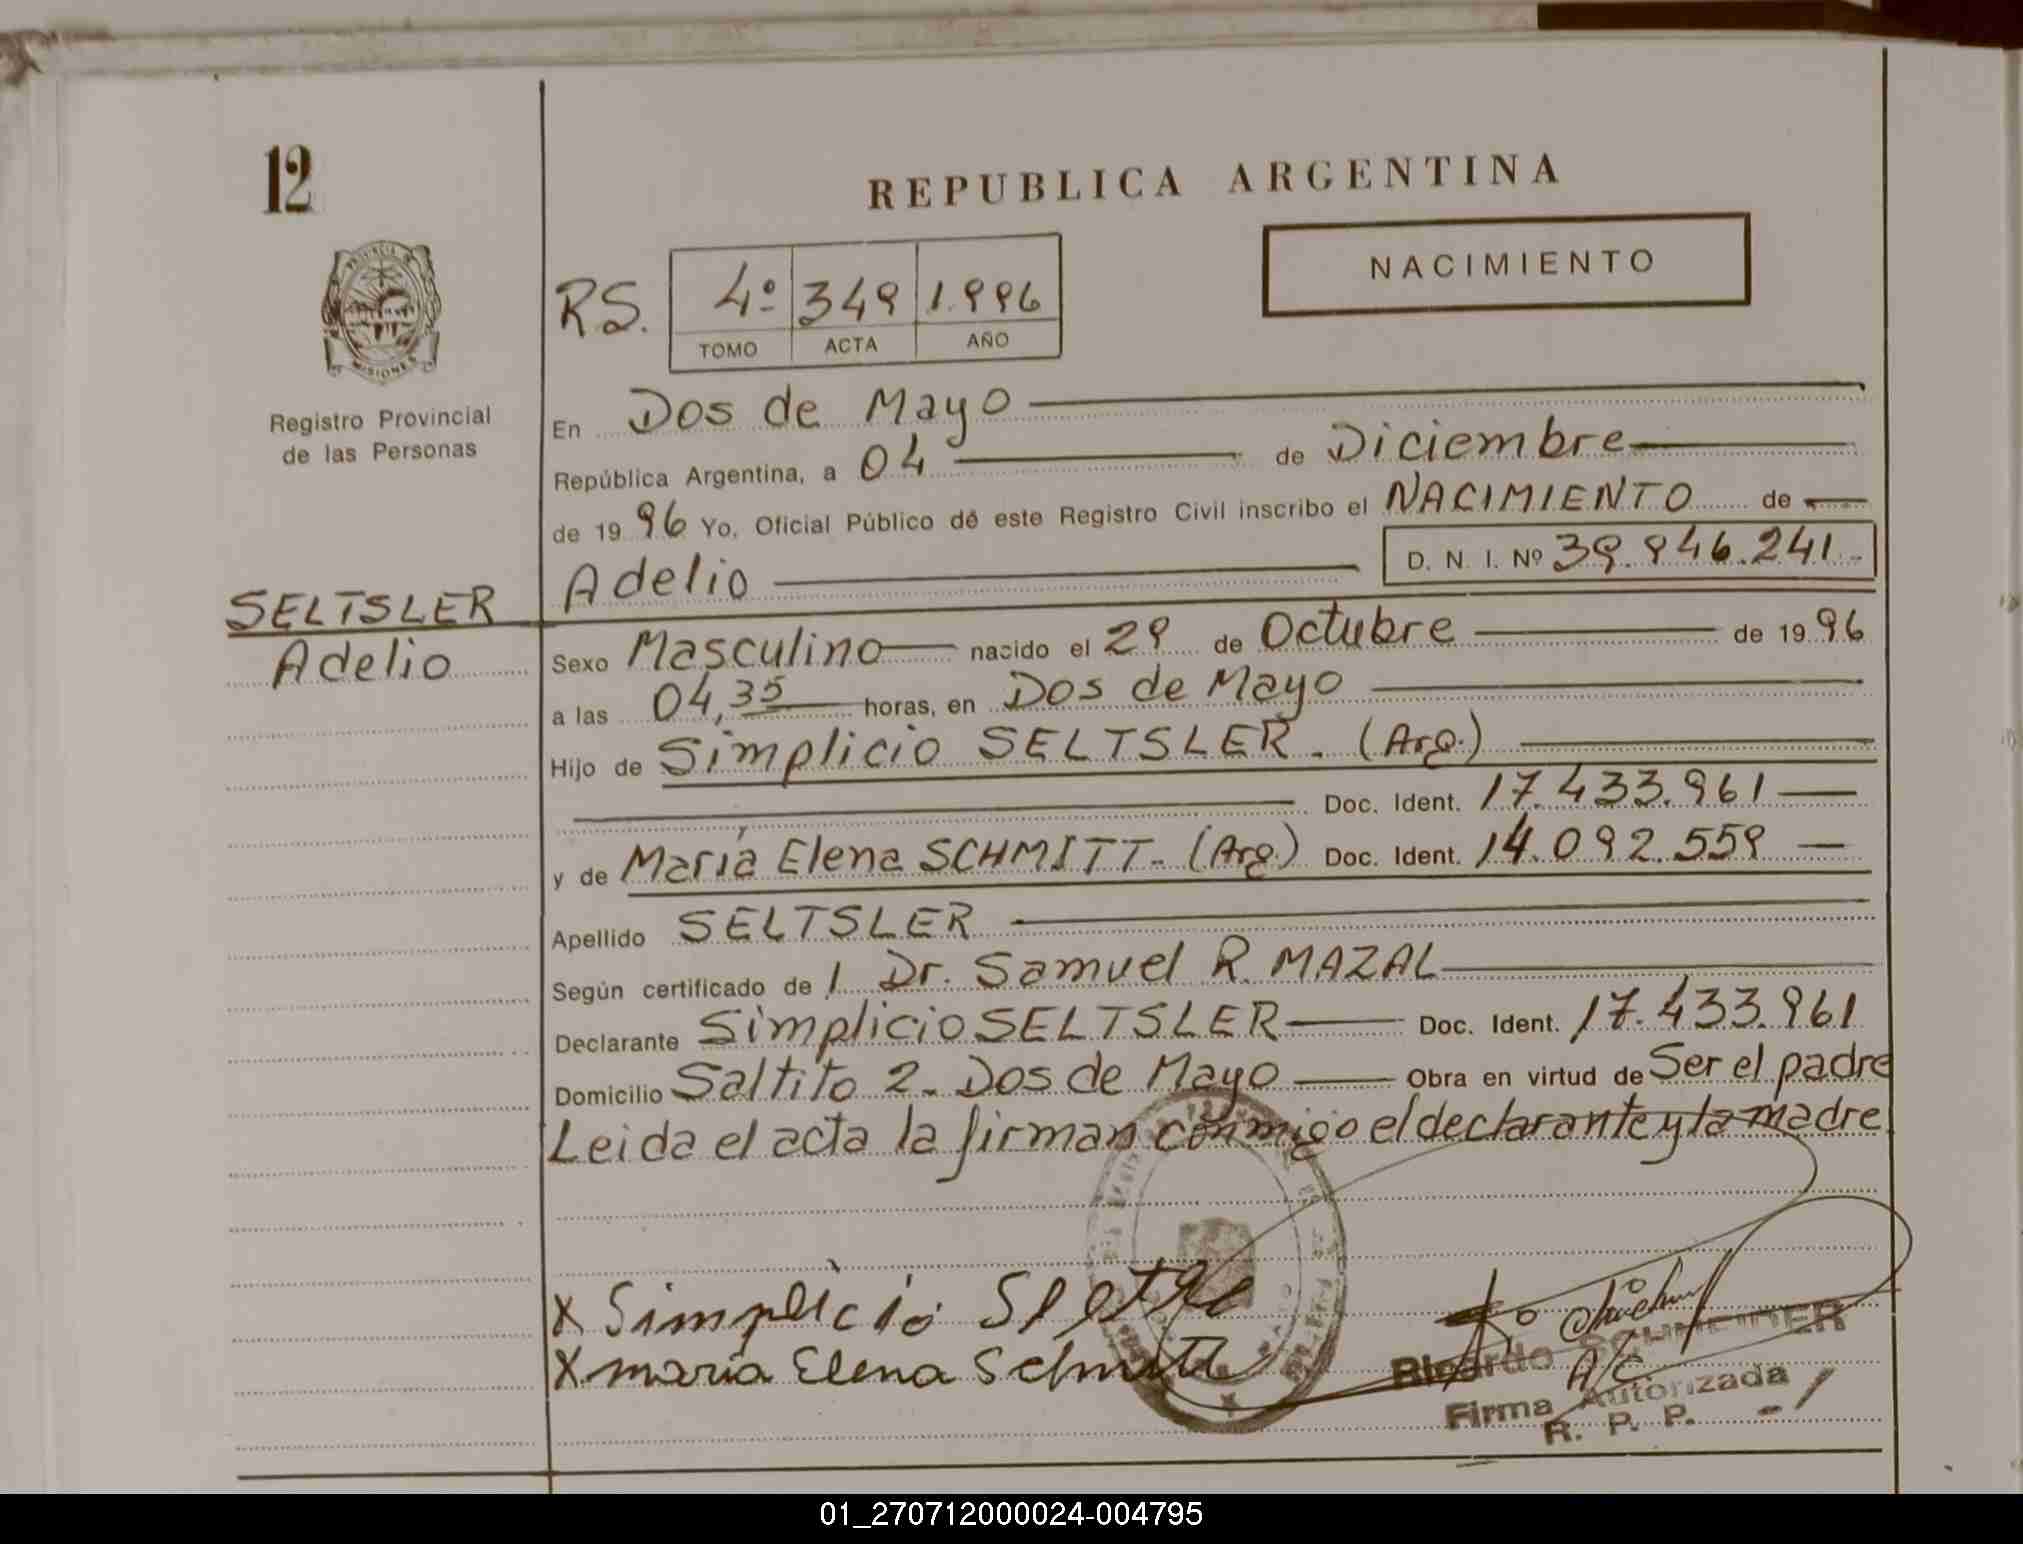 12
REPUBLICA ARGENTINA
NACIMIENTO
PROVINCIA DE
MISIONES
Registro Provincial
de las Personas
RS. 4º 349 1.996
TOMO ACTA AÑO
En Dos de Mayo
República Argentina, a 04 de Diciembre
de 19 96 Yo, Oficial Público de este Registro Civil inscribo el NACIMIENTO de
Adelio D. N. I. Nº 39.946.241.-
SELTSLER
Adelio
Sexo Masculino nacido el 29 de Octubre de 19 96
a las 04,35 horas, en Dos de Mayo
Hijo de Simplicio SELTSLER. (Arg.)
Doc. Ident. 17.433.961
y de María Elena SCHMITT- (Arg.) Doc. Ident. 14.092.559
Apellido SELTSLER
Según certificado de l Dr. Samuel R. MAZAL
Declarante Simplicio SELTSLER Doc. Ident. 17.433.961
Domicilio Saltito 2- Dos de Mayo Obra en virtud de Ser el padre
Leida el acta la firman conmigo el declarante y la madre
X Simplicio
X maria Elena Schmitt
Ricardo SCHNEIDER
A/C
Firma Autorizada
R. P. P.
01_270712000024-004795